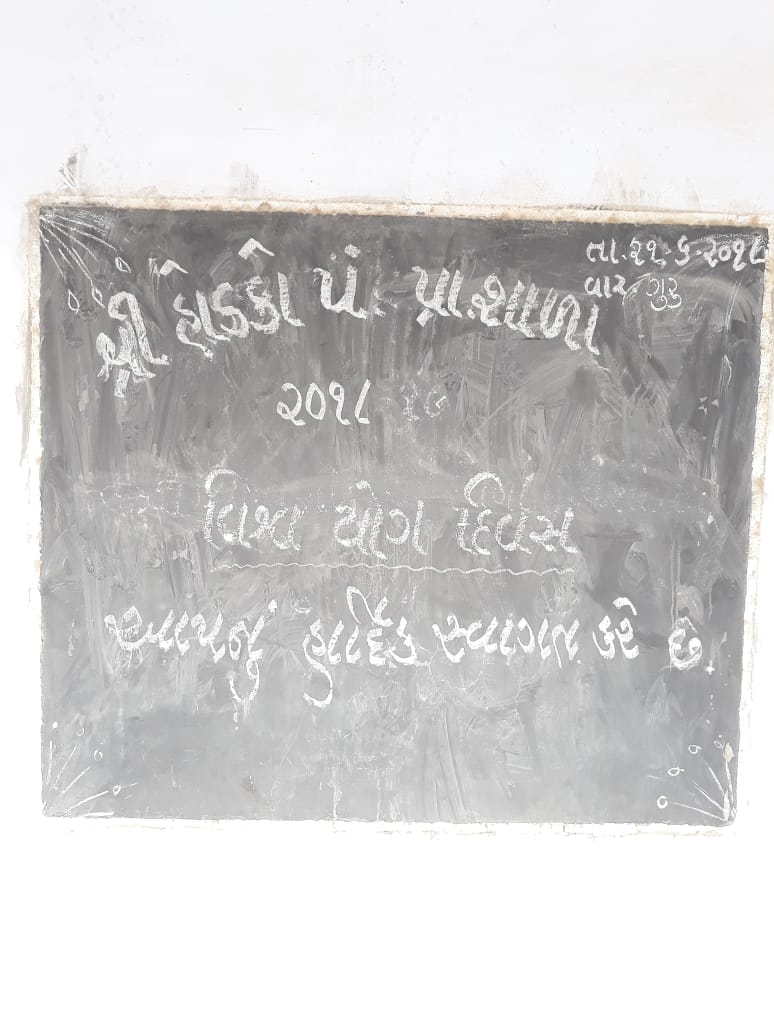 તા.૨૧.૬.૨૦૧૮
વાર ગુરુ
શ્રી હોડકો પં. પ્રા.શાળા
૨૦૧૮-૧૯
વિશ્વ યોગ દિવસ
આપનું હાર્દિક સ્વાગત કરે છે.